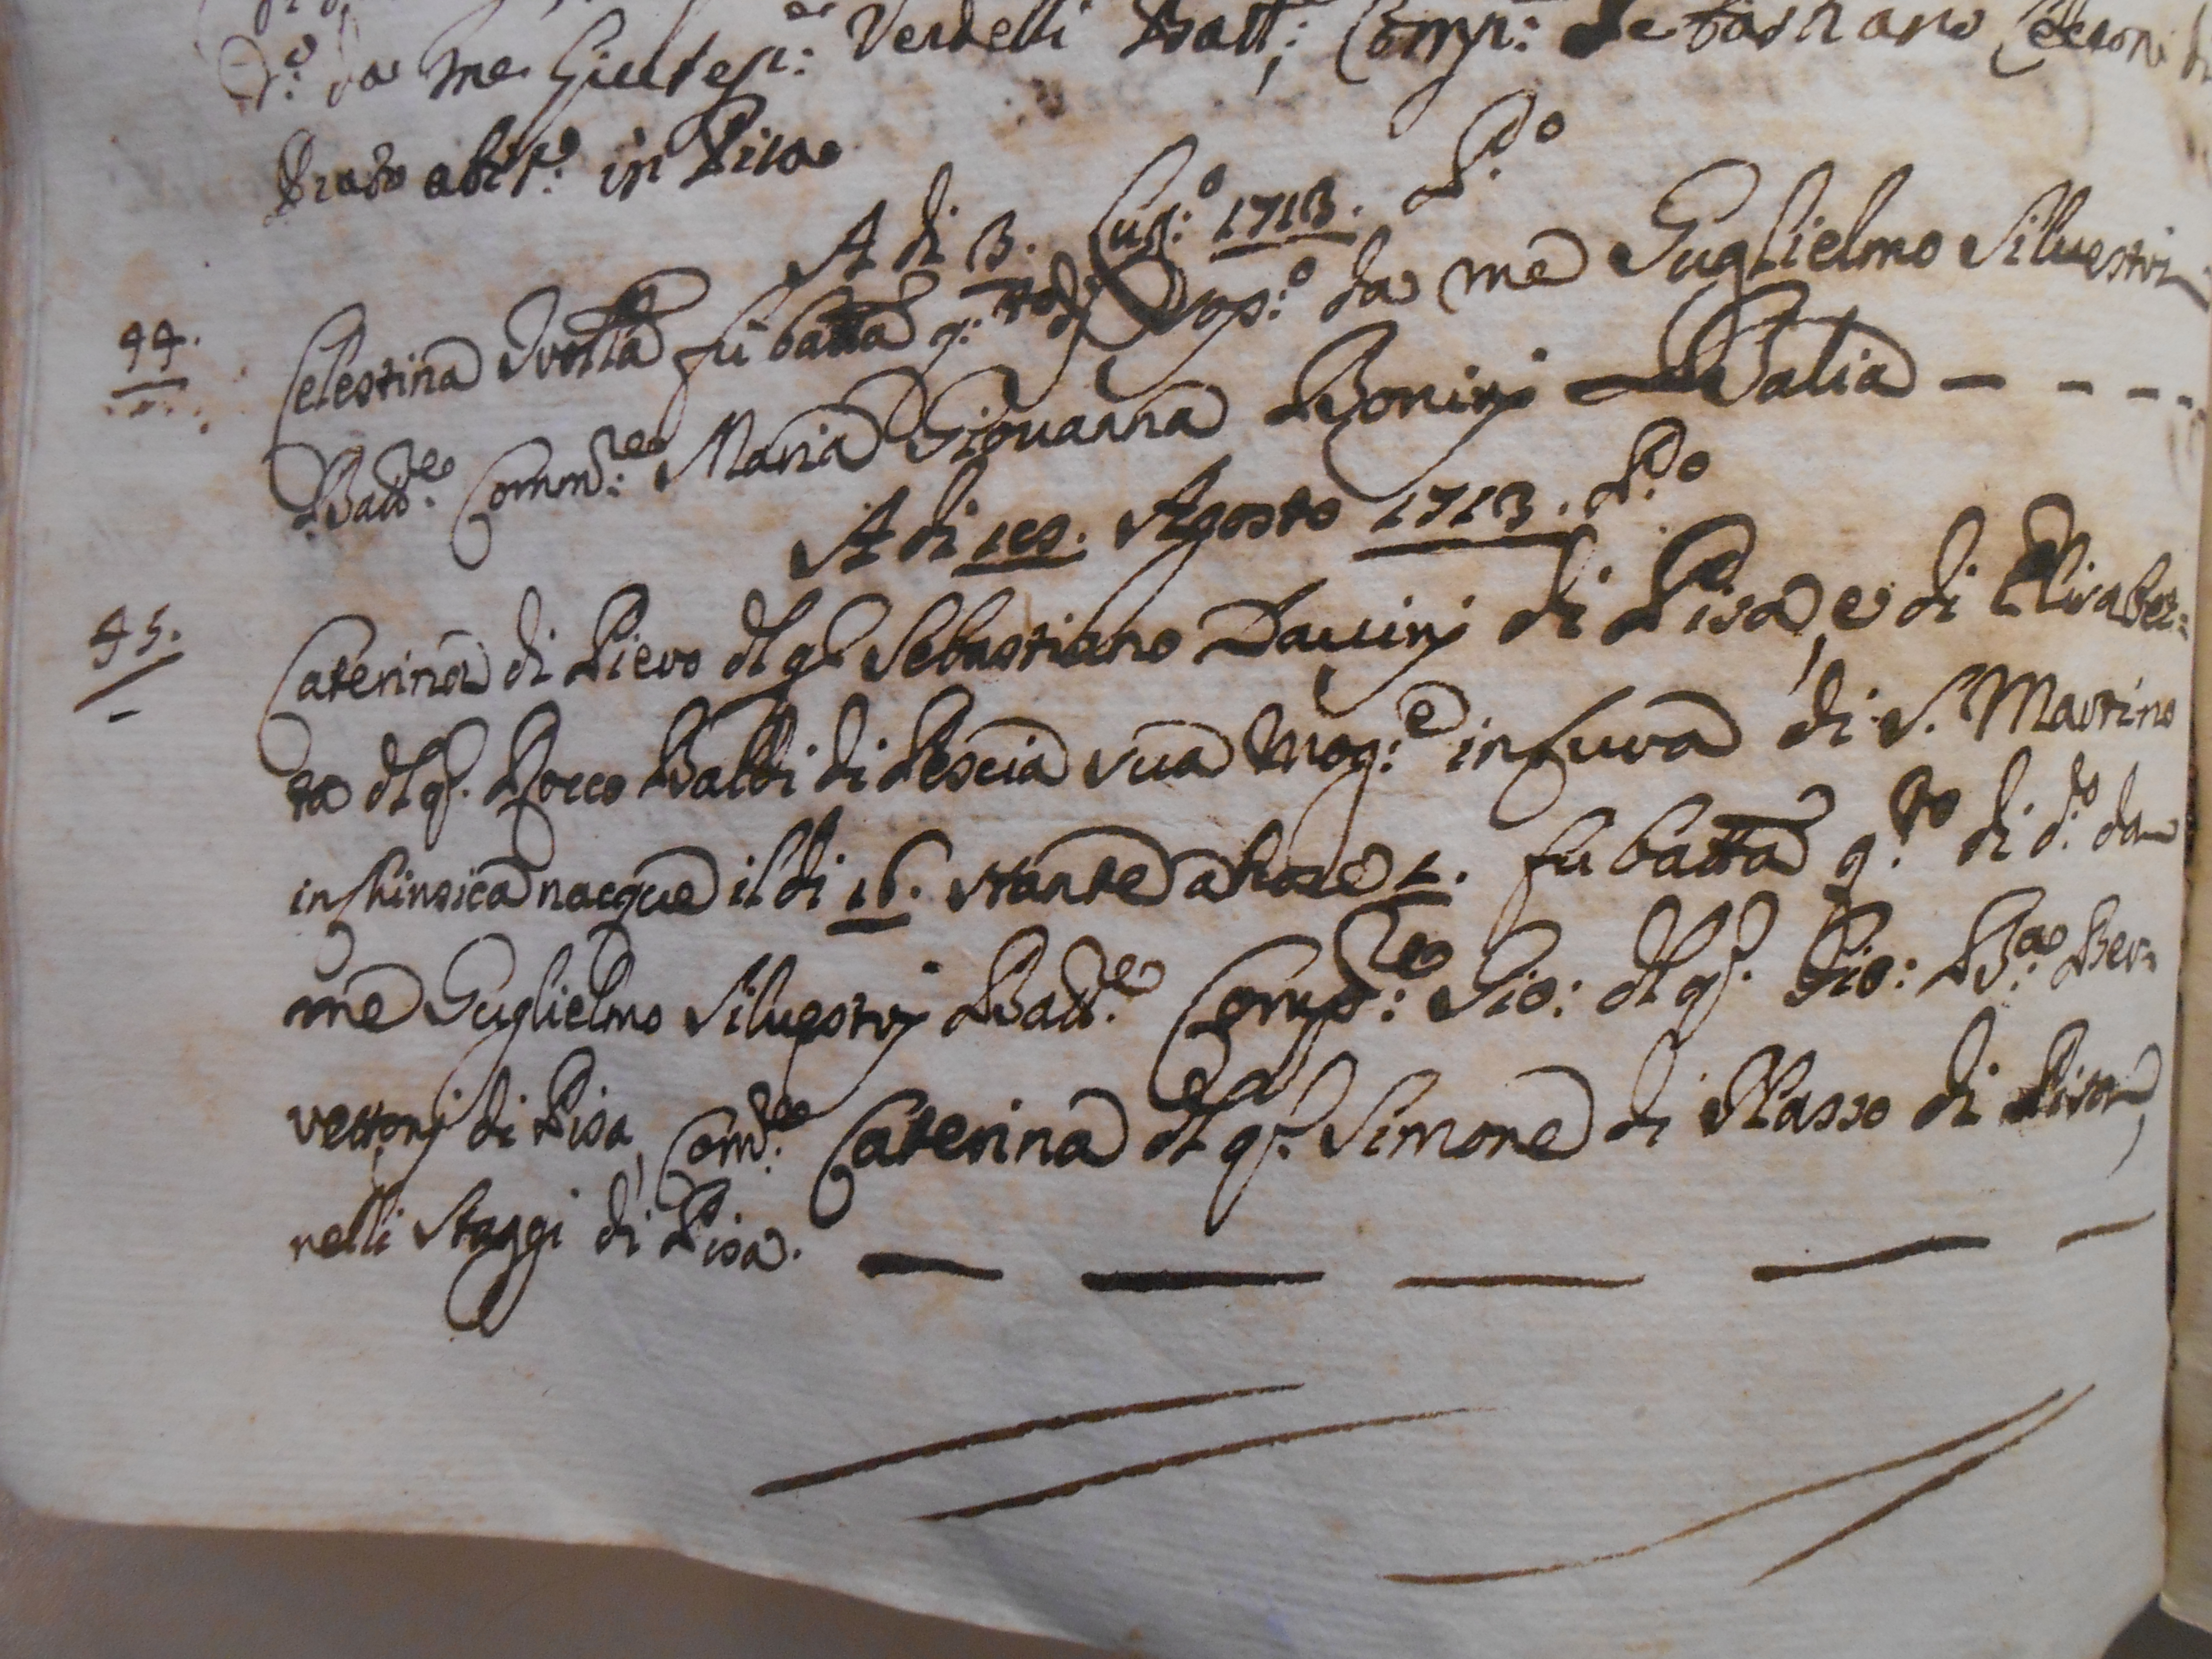 d.º da me Giusep.e Verdelli Batt.e; Comp.e Sebastiano
Prato abit.e in Pisa
A di 3. Lug.º 1713. P.º
44. Celestina Gettta fu batta q.to di Osp.º da me Guglielmo Siluestri
Batt.e Comm.re Maria Giouanna Boninj Balia — - - -
A di 18. Agosto 1713. P.º
45. Caterina di Piero dl q. Sebastiano Dauinj di Pisa, e di Elisabet=
ta dl q. Rocco Balbi di Pescia sua Mog.e in Cura di S. Martino
in Chinsica nacque il di 16. stante a hore 5. fu batta q.to di d.to da
me Guglielmo Siluestrj Batt.e Comp.re Gio: dl q. Gio: B.a Ber=
vettonj di Pisa, Com.re Caterina dl q. Simone di Masso di Pisa,
nelli Staggi di Pisa. — — — — —